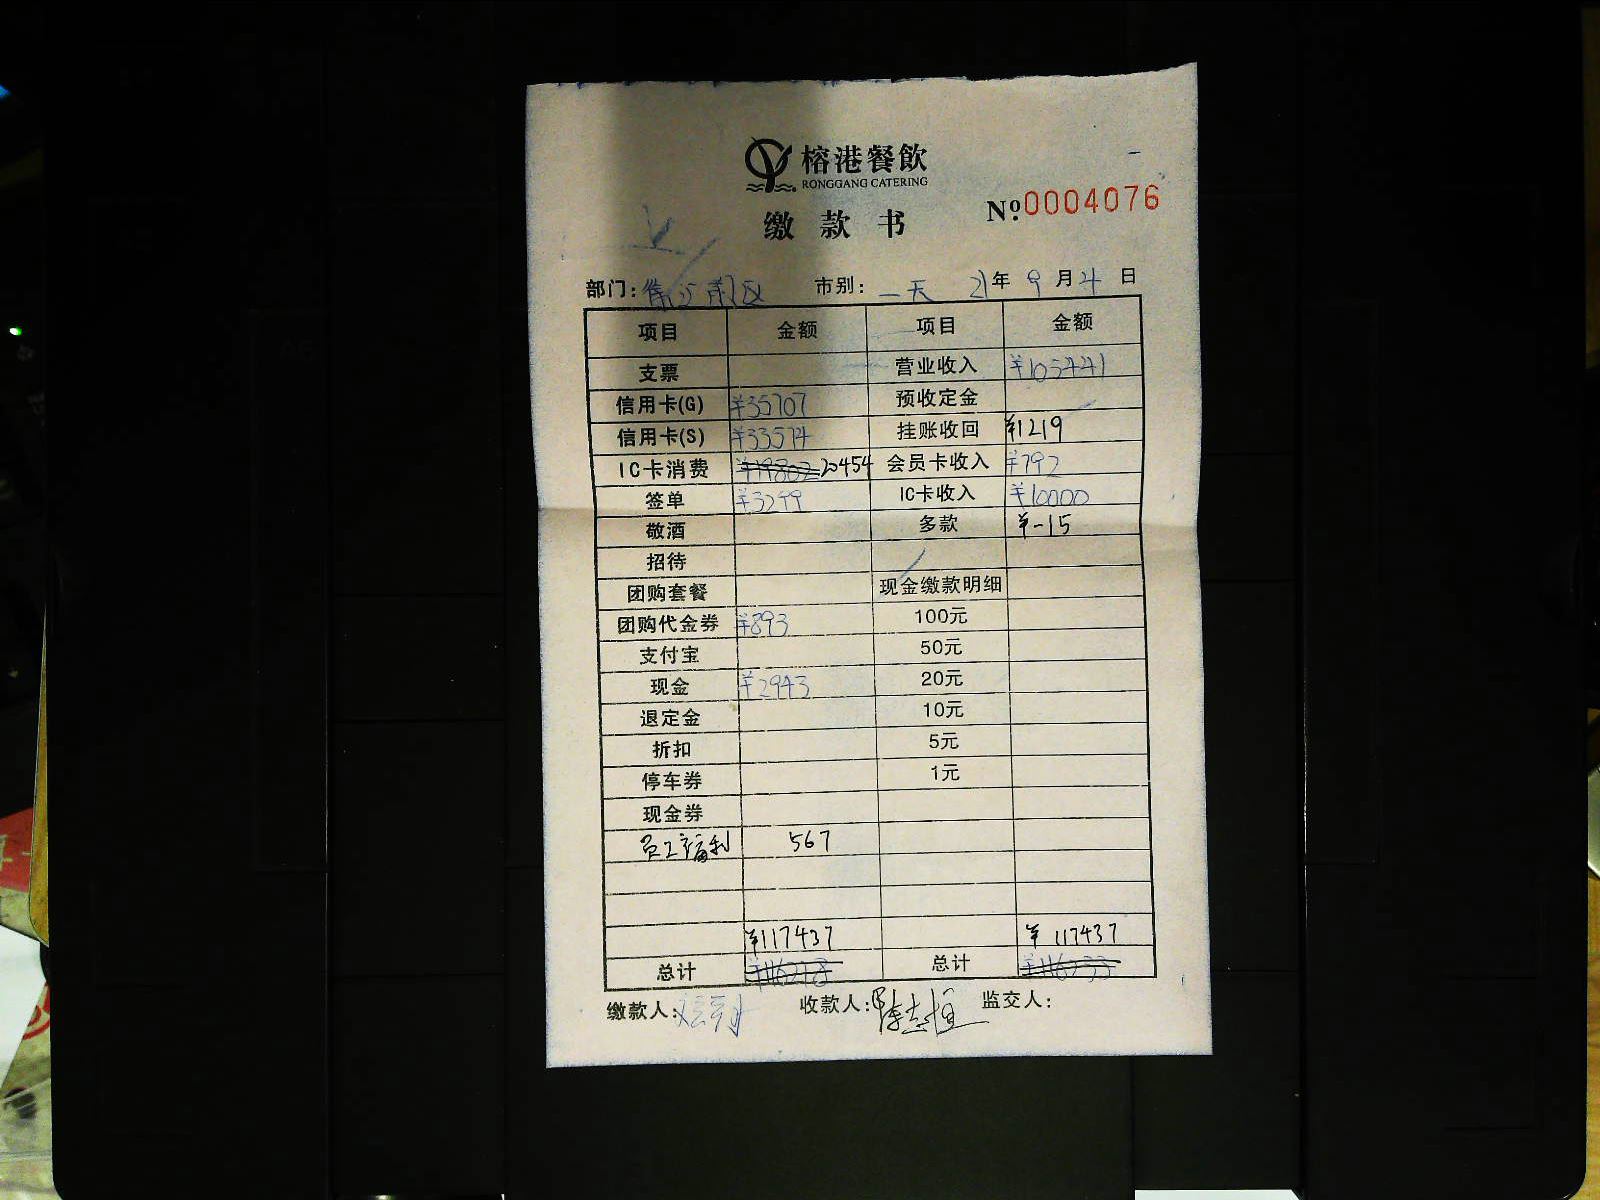 榕港餐飲
RONGGANG CATERING
缴款书 Nº 0004076
部门: 市别: 一天 21年 9月4日
项目 金额 项目 金额
支票 营业收入 ¥105441
信用卡(G) ¥35707 预收定金
信用卡(S) ¥33574 挂账收回 ¥1219
IC卡消费 ¥19802 20454 会员卡收入 ¥792
签单 ¥3299 IC卡收入 ¥10000
敬酒 多款 ¥-15
招待
团购套餐 现金缴款明细
团购代金券 ¥893 100元
支付宝 50元
现金 ¥2943 20元
退定金 10元
折扣 5元
停车券 1元
现金券
员工福利 567
¥117437 ¥117437
总计 ¥116218 总计 ¥116233
缴款人: 收款人: 监交人: